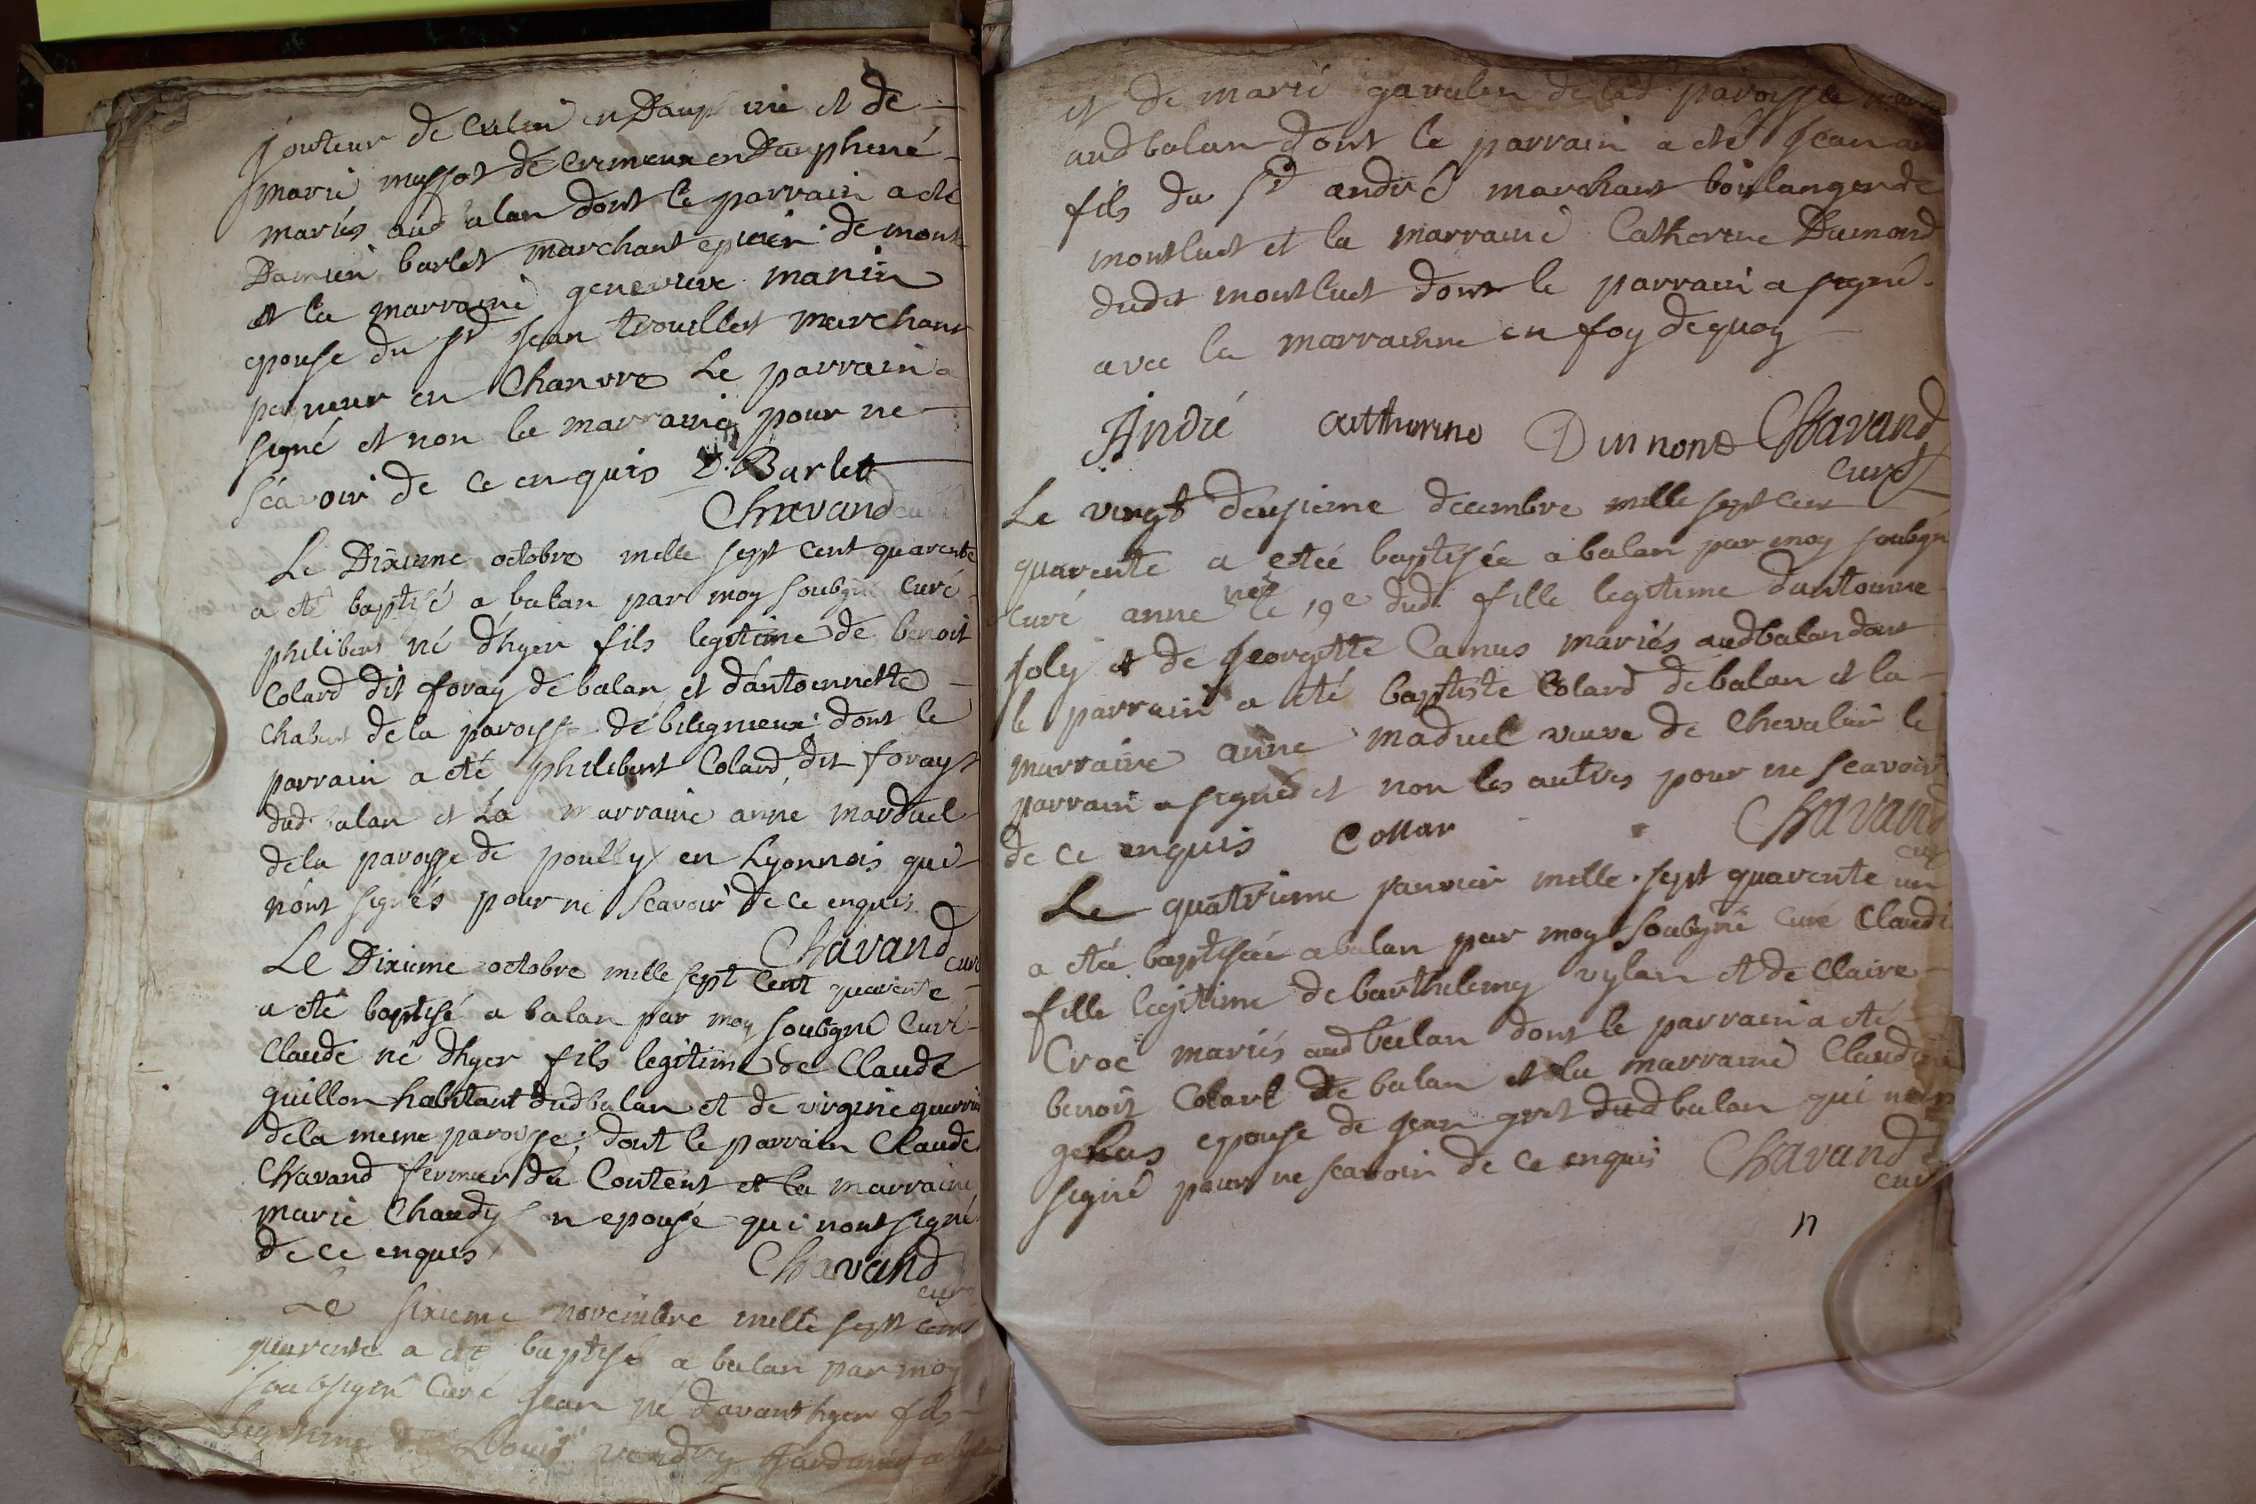 de culin en Dauphine et de
marie mussot de Cremieux en Dauphené
mariés aud balan dont le parrain a eté
Damien barlet marchant epicier de mont
et la marraine genevieve manin
epouse du Sr jean trouillet marchant
en Chanvre Le parrain a
signé et non la marraine pour ne
scavoir de ce enquis D. Barlet
Chavand curé
Le Dixieme octobre mille sept cent quarente
a eté baptisé a balan par moy soubgné Curé
philibert né d'hyer fils legitime de benoit
Colard dit foray de balan et d'antoinnette
Chabert de la paroisse de biligneux dont le
parrain a eté philibert Colard dit foray
dud balan et La marraine anne marduel
de la paroisse de poully en Lyonnois qui
n'ont signés pour ne Scavoir de ce enquis
Chavand curé
Le Dixieme octobre mille sept Cent quarente
a eté baptisé a balan par moy soubgné Curé
Claude né d'hyer fils legitime de Claude
guillon habitant dud balan et de virginie
de la meme paroisse, dont le parrain Claude
Chavand fermier du Content et la marraine
marie Chaudy son epouse qui nont signé
de ce enquis
Chavand curé
Le sixieme novembre mille sept cent
quarente a eté baptisé a balan par moy
soubsigné Curé jean né d'avant hyer fils
legitime de Louis
et de marie de lad paroisse
aud balan dont le parrain a eté jean
fils du Sr andré marchant boulanger de
montluet et la marraine Catherine Dumond
dudit montluet dont le parrain a signé
avec la marraine en foy de quoy
André Catherine Dumond Chavand
curé
Le vingt deusieme decembre mille sept cent
quarente a eteé baptisée a balan par moy soubgn
née
Curé anne le 19e dud. fille legitime d'antoinne
joly et de georgette Camus mariés aud balan dont
le parrain a eté baptiste Colard de balan et la
marraine anne maduel veuve de Chevalier le
parrain a signé et non les autres pour ne scavoir
de ce enquis Collar Chavand
curé
Le quatrieme janvier mille sept quarente un
a eté baptisée a balan par moy soubgné Curé
fille legitime de barthelemy vylan et de Claire
Croc mariés aud balan dont le parrain a eté
benoit Colard de balan et la marraine
epouse de jean dud balan qui
signé pour ne scavoir de ce enquis Chavand
curé